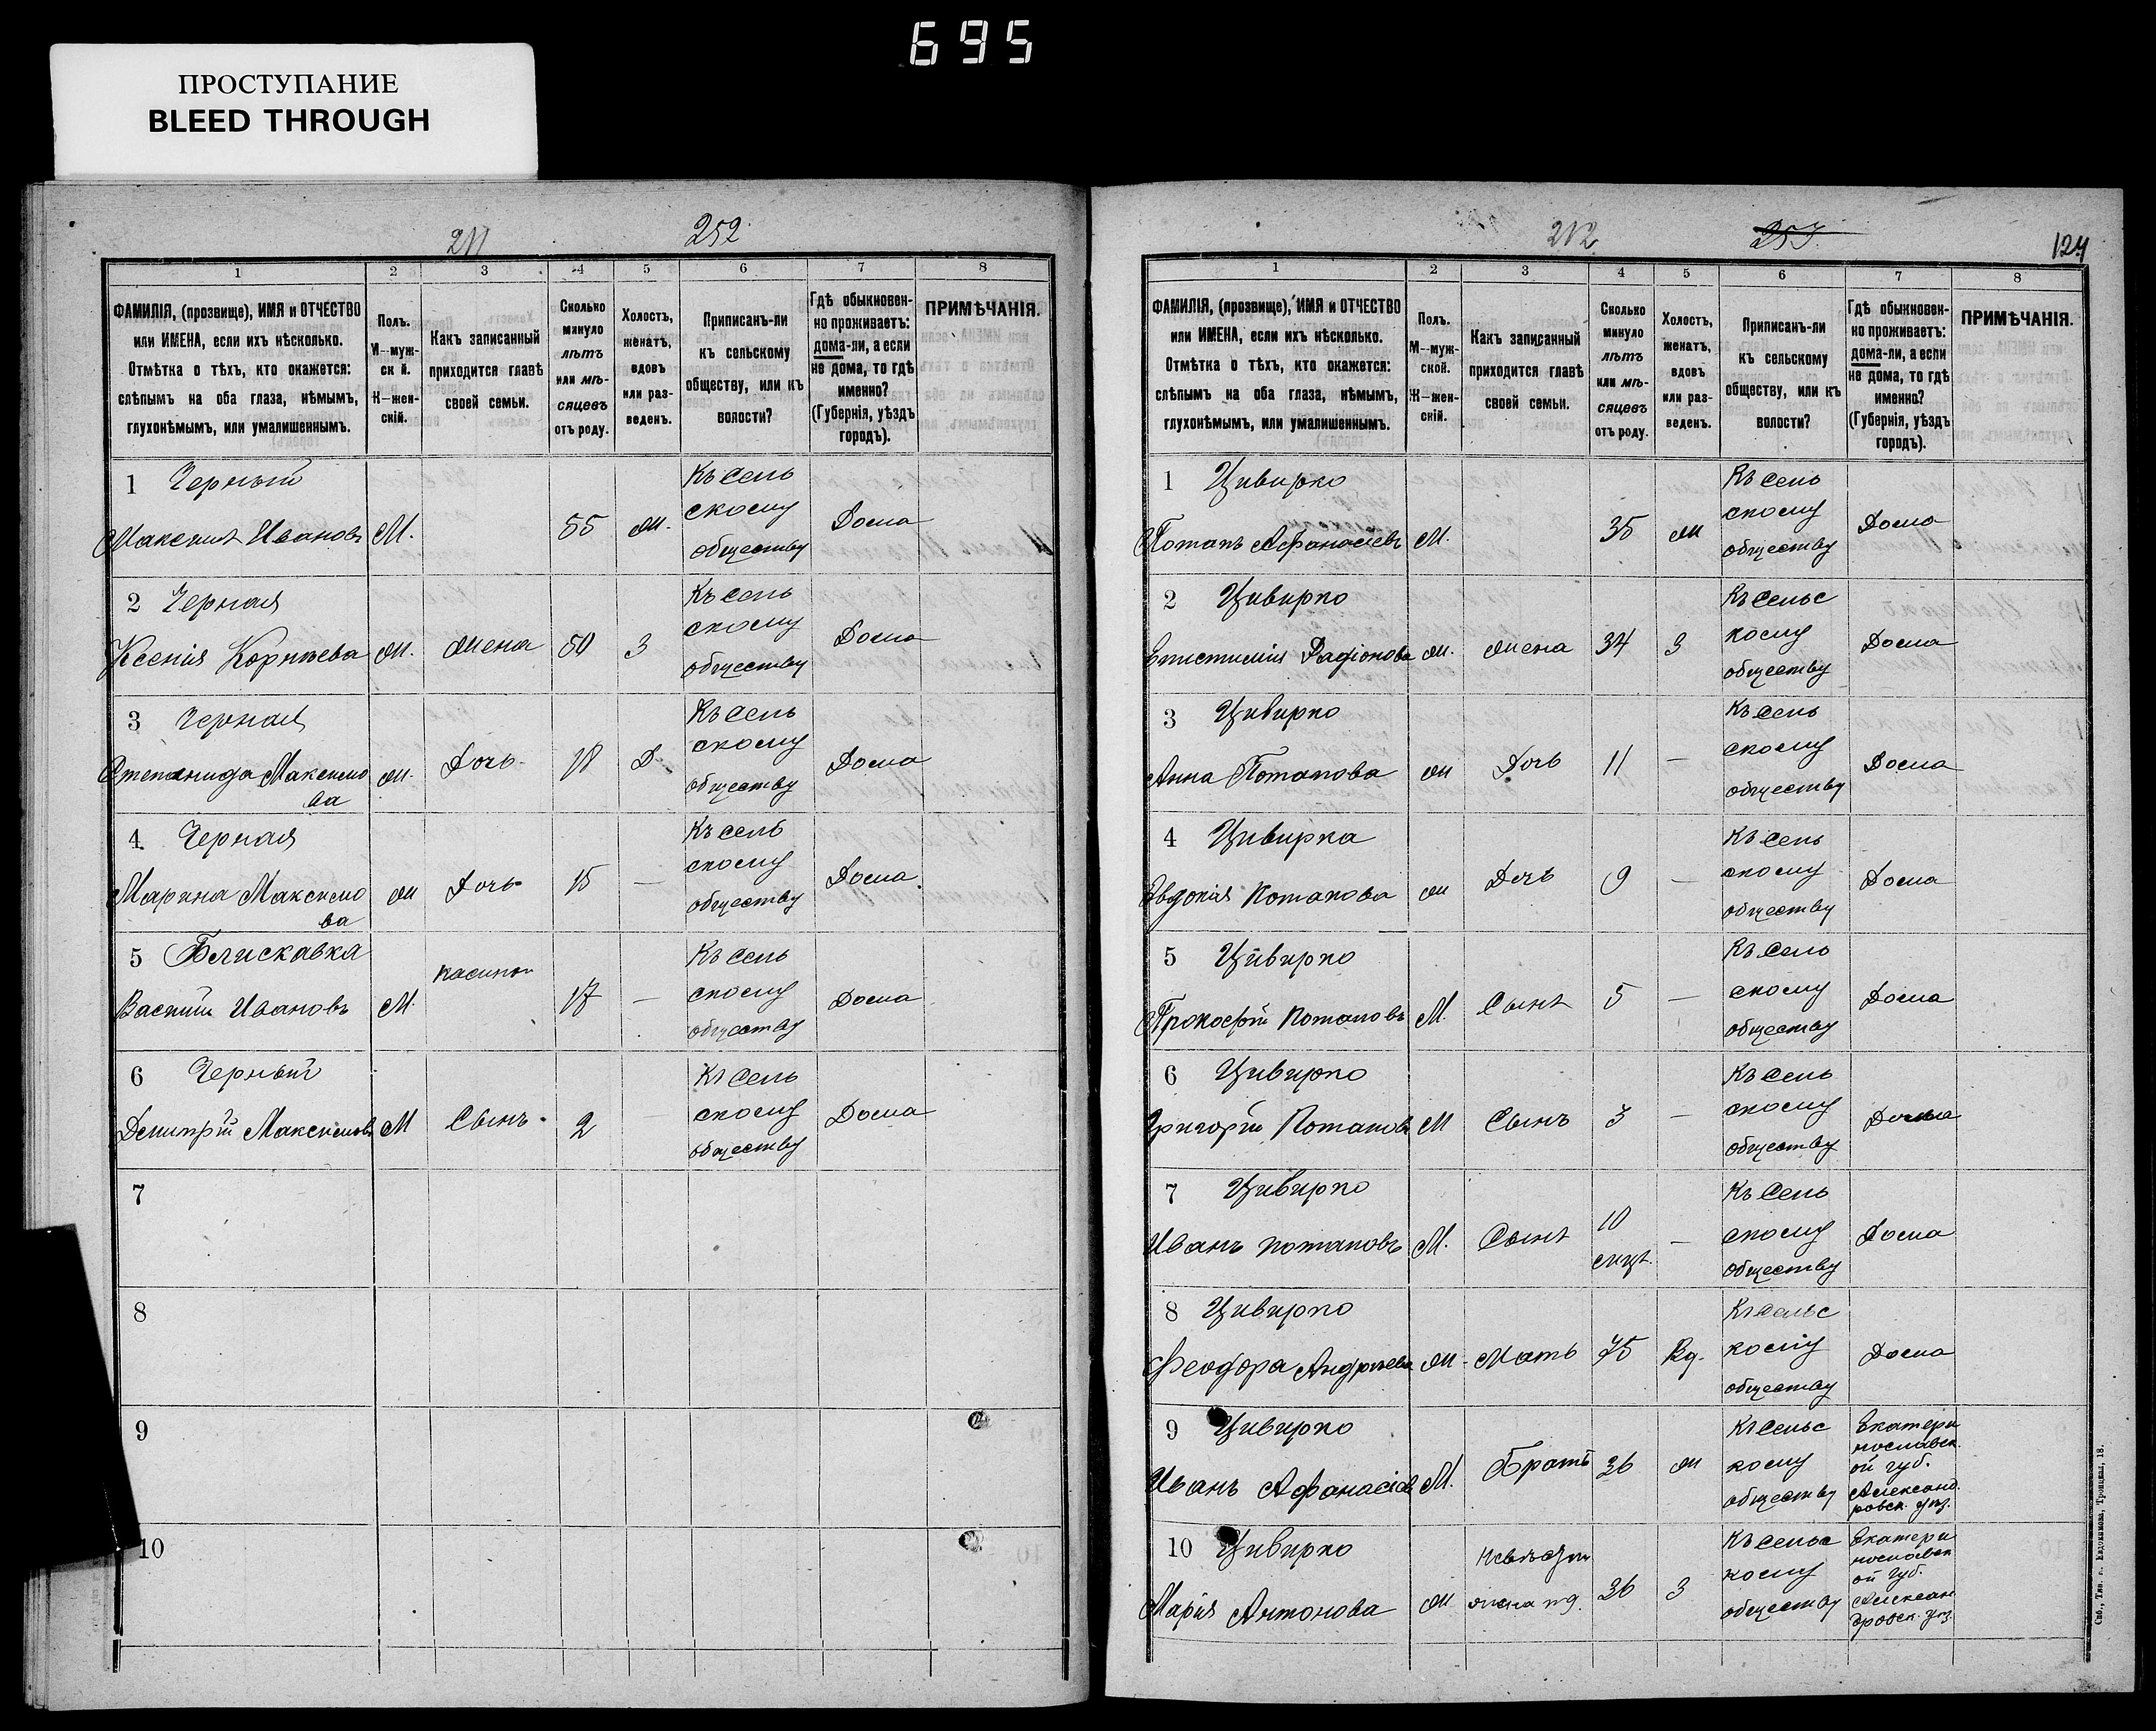 695
ПРОСТУПАНИЕ
BLEED THROUGH
211 252
1 2 3 4 5 6 7 8
ФАМИЛІЯ, (прозвище), ИМЯ и ОТЧЕСТВО
или ИМЕНА, если ихъ нѣсколько.
Отмѣтка о тѣхъ, кто окажется:
слѣпымъ на оба глаза, нѣмымъ,
глухонѣмымъ, или умалишеннымъ.
Полъ.
М—муж-
ск й.
Ж—жен-
скій.
Какъ записанный
приходится главѣ
своей семьи.
Сколько
минуло
лѣтъ
или мѣ-
сяцевъ
отъ роду.
Холостъ,
женатъ,
вдовъ
или раз-
веденъ.
Приписанъ-ли
къ сельскому
обществу, или къ
волости?
Гдѣ обыкновен-
но проживаетъ:
дома-ли, а если
не дома, то гдѣ
именно?
(Губернія, уѣздъ
городъ).
ПРИМѢЧАНІЯ.
1 Черный Къ сель
Максимъ Ивановъ М. 55 ж. скому Дома
обществу
2 Черная Къ сель
Ксенія Корнѣева ж. жена 50 З скому Дома
обществу
3 Черная Къ сель
Степанида Максимо ж. Дочь 18 Д скому Дома
ва обществу
4 Черная Къ сель
Марина Максимо ж Дочь 15 — скому Дома
ва обществу
5 Блискавка Къ сель
Василій Ивановъ М. 17 — скому Дома
обществу
6 Черный Къ сель
Дмитрій Максимовъ М Сынъ 2 скому Дома
обществу
7
8
9
10
212 253 124
1 2 3 4 5 6 7 8
ФАМИЛІЯ, (прозвище), ИМЯ и ОТЧЕСТВО
или ИМЕНА, если ихъ нѣсколько.
Отмѣтка о тѣхъ, кто окажется:
слѣпымъ на оба глаза, нѣмымъ,
глухонѣмымъ, или умалишеннымъ.
Полъ.
М—муж-
ской.
Ж—жен-
скій.
Какъ записанный
приходится главѣ
своей семьи.
Сколько
минуло
лѣтъ
или мѣ-
сяцевъ
отъ роду.
Холостъ,
женатъ,
вдовъ
или раз-
веденъ.
Приписанъ-ли
къ сельскому
обществу, или къ
волости?
Гдѣ обыкновен-
но проживаетъ:
дома-ли, а если
не дома, то гдѣ
именно?
(Губернія, уѣздъ
городъ).
ПРИМѢЧАНІЯ.
1 Цивирко Къ сель
Потапъ Афанасіевъ М. 35 ж скому Дома
обществу
2 Цивирко Къ сельс
Епистимія Радіонова ж. жена 34 З кому Дома
обществу
3 Цивирко Къ сель
Анна Потапова ж Дочь 11 — скому Дома
обществу
4 Цивирка Къ сель
Евдокія Потапова ж Дочь 9 — скому Дома
обществу
5 Цивирко Къ сель
Прокофій Потаповъ М. Сынъ 5 — скому Дома
обществу
6 Цивирко Къ сель
Григорій Потаповъ М Сынъ 3 — скому Дома
обществу
7 Цивирко Къ сель
Иванъ Потаповъ М. Сынъ 10 — скому Дома
обществу
8 Цивирко Къ сельс
Феодора Андрѣева ж. Мать 75 Вд. кому Дома
обществу
9 Цивирко Къ сельс
Иванъ Афанасіев М. Братъ 36 ж кому
обществу
Екатери
нославск
ой губ.
Александ
ровск. уѣз.
10 Цивирко Къ сельс
Марія Антонова ж 36 З кому
обществу
Екатери
нославск
ой губ.
Алексан
дровск. уѣз.
Спб., Тип. Евдокимова, Троицкая, 18.